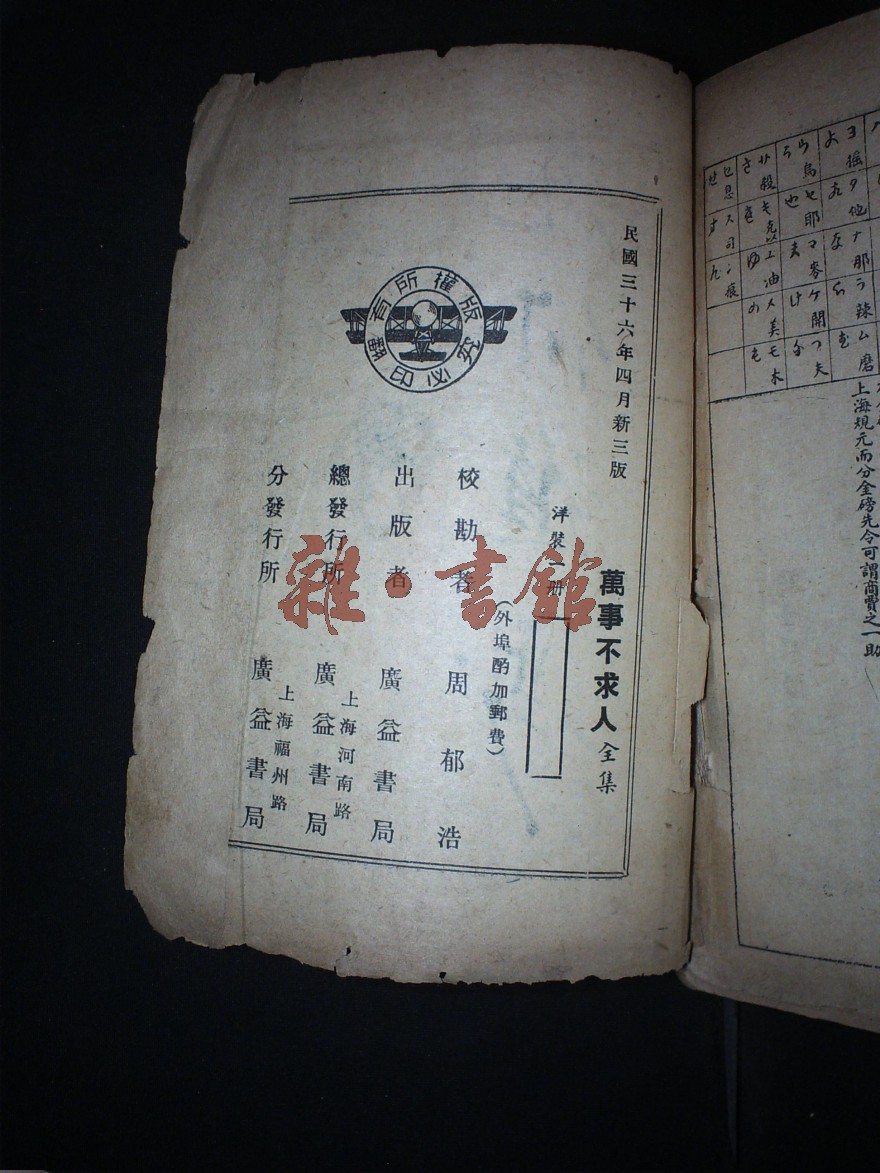 民國三十六年四月新三版
萬事不求人全集
洋裝一册
(外埠酌加郵費)
校勘者 周郁浩
出版者 廣益書局
總發行所 上海河南路 廣益書局
分發行所 上海福州路 廣益書局
版權所有
翻印必究
雜·書館
ヨ搖 ウ烏 サ殺 セ息
よ う さ せ
タ他 ヤ耶 キ克以 ス司
た や き す
ナ那 マ麥 ユ油 ン痕
な ま ゆ ん
ラ辣 ケ開 メ美
ら け め
ム磨 フ夫 モ木
む ふ も
上海規元而分金磅先令可謂商賈之一助